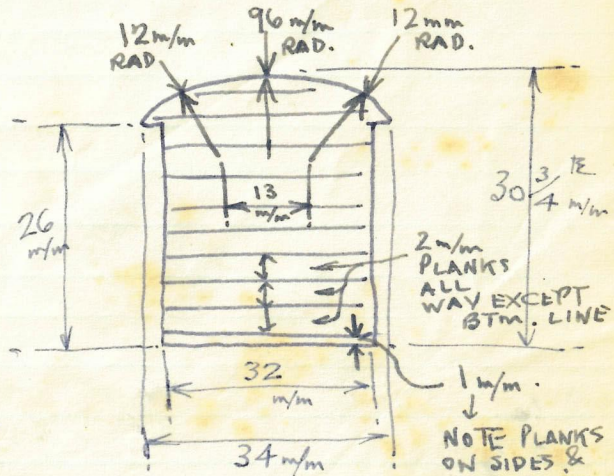 12 m/m
RAD
96 m/m
RAD.
12 mm
RAD.
26
m/m
13
m/m
30 3/4 m/m
2 m/m
PLANKS
ALL
WAY EXCEPT
BTM. LINE
32
m/m
1 m/m.
34 m/m
NOTE PLANKS
ON SIDES &